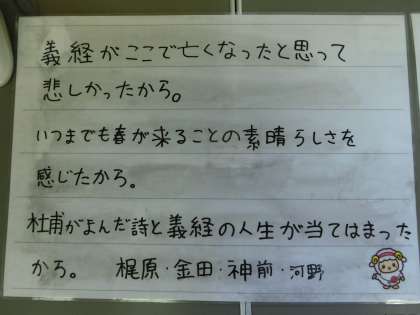 義経がここで亡くなったと思って
悲しかったから。
いつまでも春が来ることの素晴らしさを
感じたから。
杜甫がよんだ詩と義経の人生が当てはまった
から。　梶原・金田・神前・河野